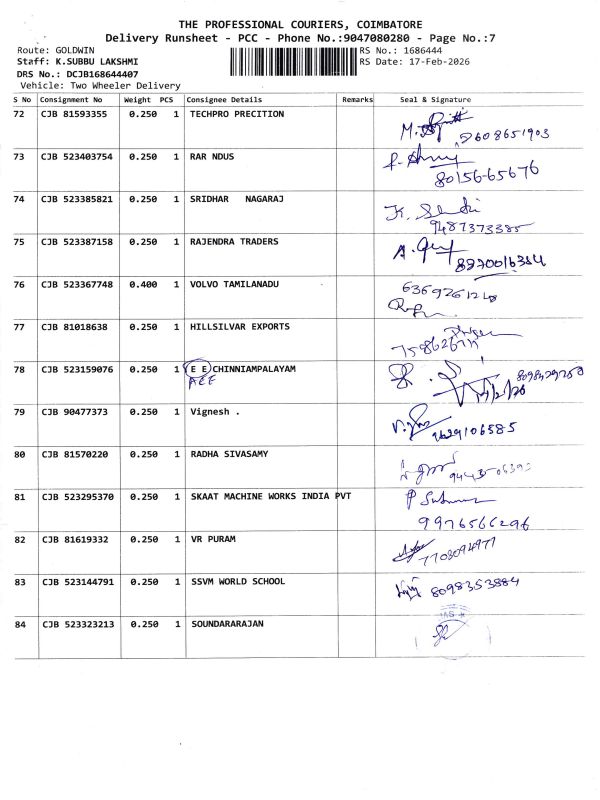 THE PROFESSIONAL COURIERS, COIMBATORE
Delivery Runsheet - PCC - Phone No.:9047080280 - Page No.:7
Route: GOLDWIN RS No.: 1686444
Staff: K.SUBBU LAKSHMI RS Date: 17-Feb-2026
DRS No.: DCJB168644407
Vehicle: Two Wheeler Delivery
S No Consignment No Weight PCS Consignee Details Remarks Seal & Signature
72 CJB 81593355 0.250 1 TECHPRO PRECITION
73 CJB 523403754 0.250 1 RAR NDUS 80156-65676
74 CJB 523385821 0.250 1 SRIDHAR NAGARAJ 9487373385
75 CJB 523387158 0.250 1 RAJENDRA TRADERS
76 CJB 523367748 0.400 1 VOLVO TAMILANADU
77 CJB 81018638 0.250 1 HILLSILVAR EXPORTS
78 CJB 523159076 0.250 1 E E CHINNIAMPALAYAM
AEE
79 CJB 90477373 0.250 1 Vignesh .
80 CJB 81570220 0.250 1 RADHA SIVASAMY
81 CJB 523295370 0.250 1 SKAAT MACHINE WORKS INDIA PVT
9976566296
82 CJB 81619332 0.250 1 VR PURAM 7708094977
83 CJB 523144791 0.250 1 SSVM WORLD SCHOOL 8098353884
84 CJB 523323213 0.250 1 SOUNDARARAJAN